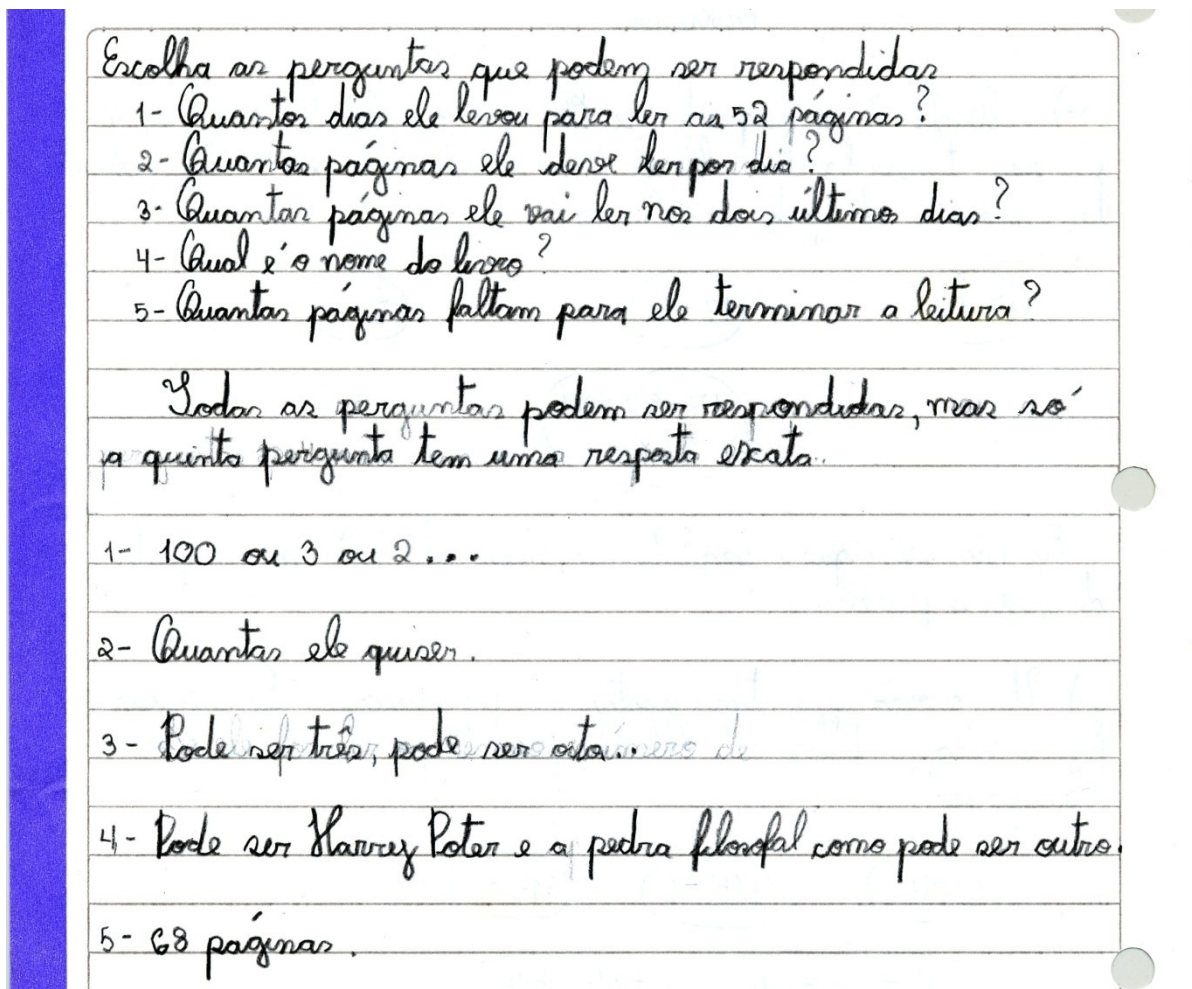 Escolha as perguntas que podem ser respondidas
1- Quantos dias ele levou para ler as 52 páginas?
2- Quantas páginas ele deve ler por dia?
3- Quantas páginas ele vai ler nos dois últimos dias?
4- Qual é o nome do livro?
5- Quantas páginas faltam para ele terminar a leitura?
Todas as perguntas podem ser respondidas, mas só
a quinta pergunta tem uma resposta escata.
1- 100 ou 3 ou 2...
2- Quantas ele quiser.
3- Pode ser três, pode ser oito...
4- Pode ser Harrey Poter e a pedra filosofal como pode ser outro.
5- 68 páginas.